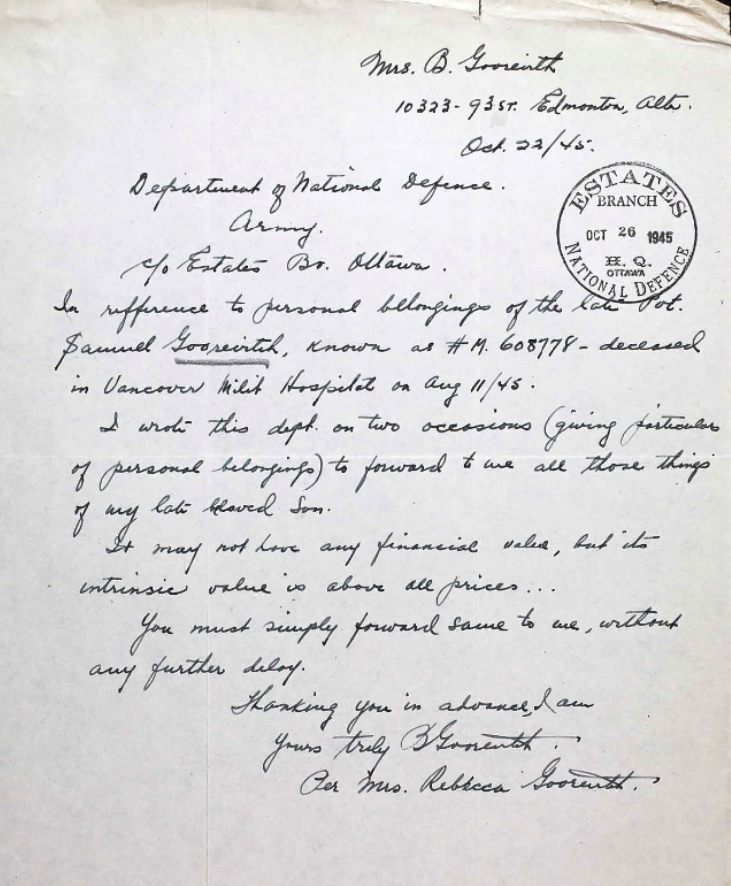 Mrs. B. Gooreirth
10323-93 St. Edmonton, Alta.
Oct. 22/45.
Department of National Defence.
Army.
c/o Estates Br. Ottawa.
ESTATES
BRANCH
OCT 26 1945
H. Q.
OTTAWA
NATIONAL DEFENCE
In refference to personal bellongings of the late Pvt.
Samuel Gooreirtch, known as # M. 608778 - deceased
in Vancover Milit Hospital on Aug 11/45.
I wrote this dept. on two occassions (giving particulars
of personal belongings) to forward to me all those things
of my late bloved Son.
It may not have any financial value, but its
intrinsic value is above all prices...
You must simply forward same to me, without
any further delay.
Thanking you in advance, I am
Yours truly B Gooreirth.
Per Mrs. Rebecca Gooreirth.